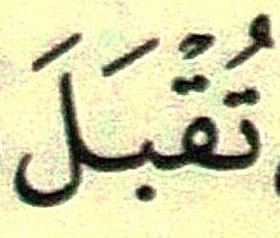 تُقْبَلَ